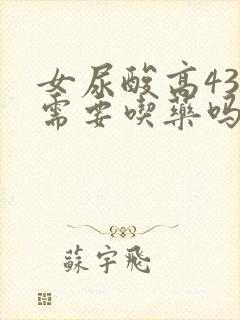 女尿酸高43
需要喫藥吗
蘇宇飛